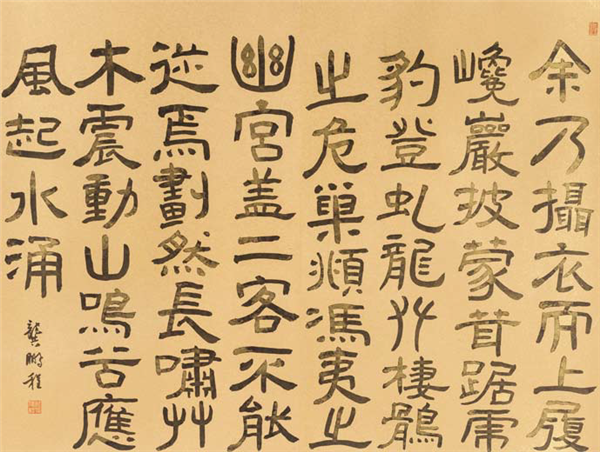 余乃攝衣而上履
巉巖披蒙茸踞虎
豹登虬龍𠬜棲鶻
之危巢頫馮夷之
幽宮盖二客不能
從焉劃然長嘯艸
木震動山鳴谷應
風起水涌
龔鵬程